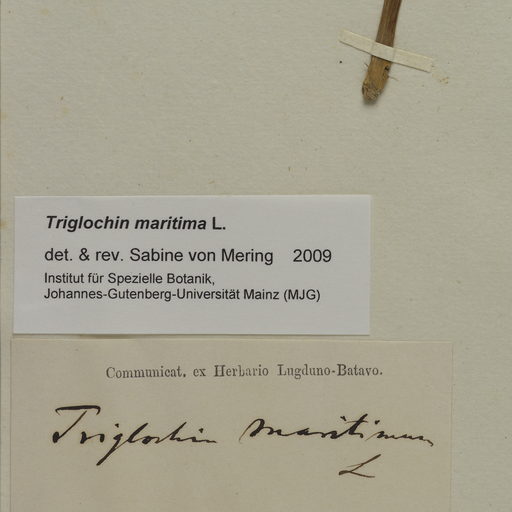 Triglochin maritima L.
det. & rev. Sabine von Mering 2009
Institut für Spezielle Botanik,
Johannes-Gutenberg-Universität Mainz (MJG)
Communicat. ex Herbario Lugduno-Batavo.
Triglochin maritimum
L